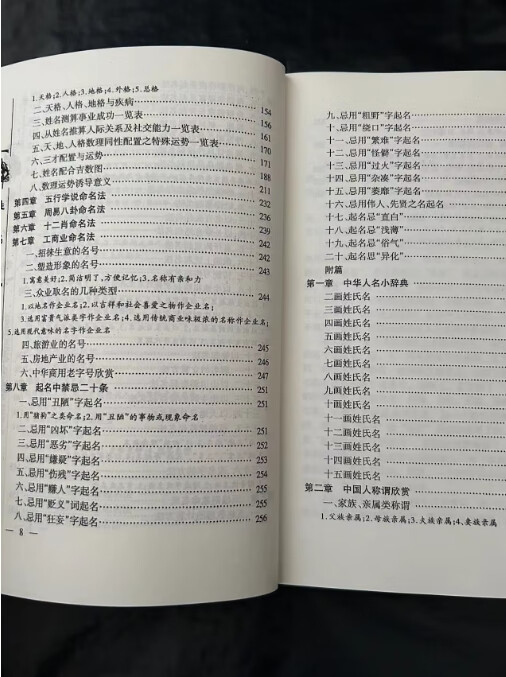 1.天格;2.人格;3.地格;4.外格;5.总格
二、天格、人格、地格与疾病 154
三、姓名测算事业成功一览表 156
四、从姓名推算人际关系及社交能力一览表 161
五、天、地、人格数理同性配置之特殊运势一览表 170
六、三才配置与运势 171
七、姓名配合吉数图 188
八、数理运势诱导意义 211
第四章 五行学说命名法 232
第五章 周易八卦命名法 236
第六章 十二肖命名法 239
第七章 工商业命名法 242
一、招徕生意的名号 242
二、塑造形象的名号 242
1.寓意美好;2.简洁明了,方便记忆;3.名称有亲和力
三、众业取名的几种类型 244
1.以地名作企业名;2.以吉祥和社会喜爱之物作企业名;
3.选用富贵气派美字作企业名;4.选用传统商业味极浓的名称作企业名;
5.选用现代意味的名字作企业名
四、旅游业的名号 245
五、房地产业的名号 247
六、中华商用老字号欣赏 247
第八章 起名中禁忌二十条 251
一、忌用“丑陋”字起名 251
1.用“猪狗”之类命名;2.用“丑陋”的事物或现象命名
二、忌用“凶坏”字起名 251
三、忌用“恶劣”字起名 252
四、忌用“嫌疑”字起名 253
五、忌用“伤残”字起名 254
六、忌用“赚人”字起名 255
七、忌用“贬义”词起名 255
八、忌用“狂妄”字起名 256
— 8 —
九、忌用“粗野”字起名
十、忌用“绕口”字起名
十一、忌用“繁难”字起名
十二、忌用“怪僻”字起名
十三、忌用“过火”字起名
十四、忌用“杂凑”字起名
十五、忌用“萎靡”字起名
十六、忌用伟人、先贤之名起名
十七、起名忌“直白”
十八、起名忌“浅薄”
十九、起名忌“俗气”
二十、起名忌“异化”
附篇
第一章 中华人名小辞典
二画姓氏名
三画姓氏名
四画姓氏名
五画姓氏名
六画姓氏名
七画姓氏名
八画姓氏名
九画姓氏名
十画姓氏名
十一画姓氏名
十二画姓氏名
十三画姓氏名
十四画姓氏名
十五画姓氏名
第二章 中国人称谓欣赏
一、家族、亲属类称谓
1.父族亲属;2.母族亲属;3.夫族亲属;4.妻族亲属